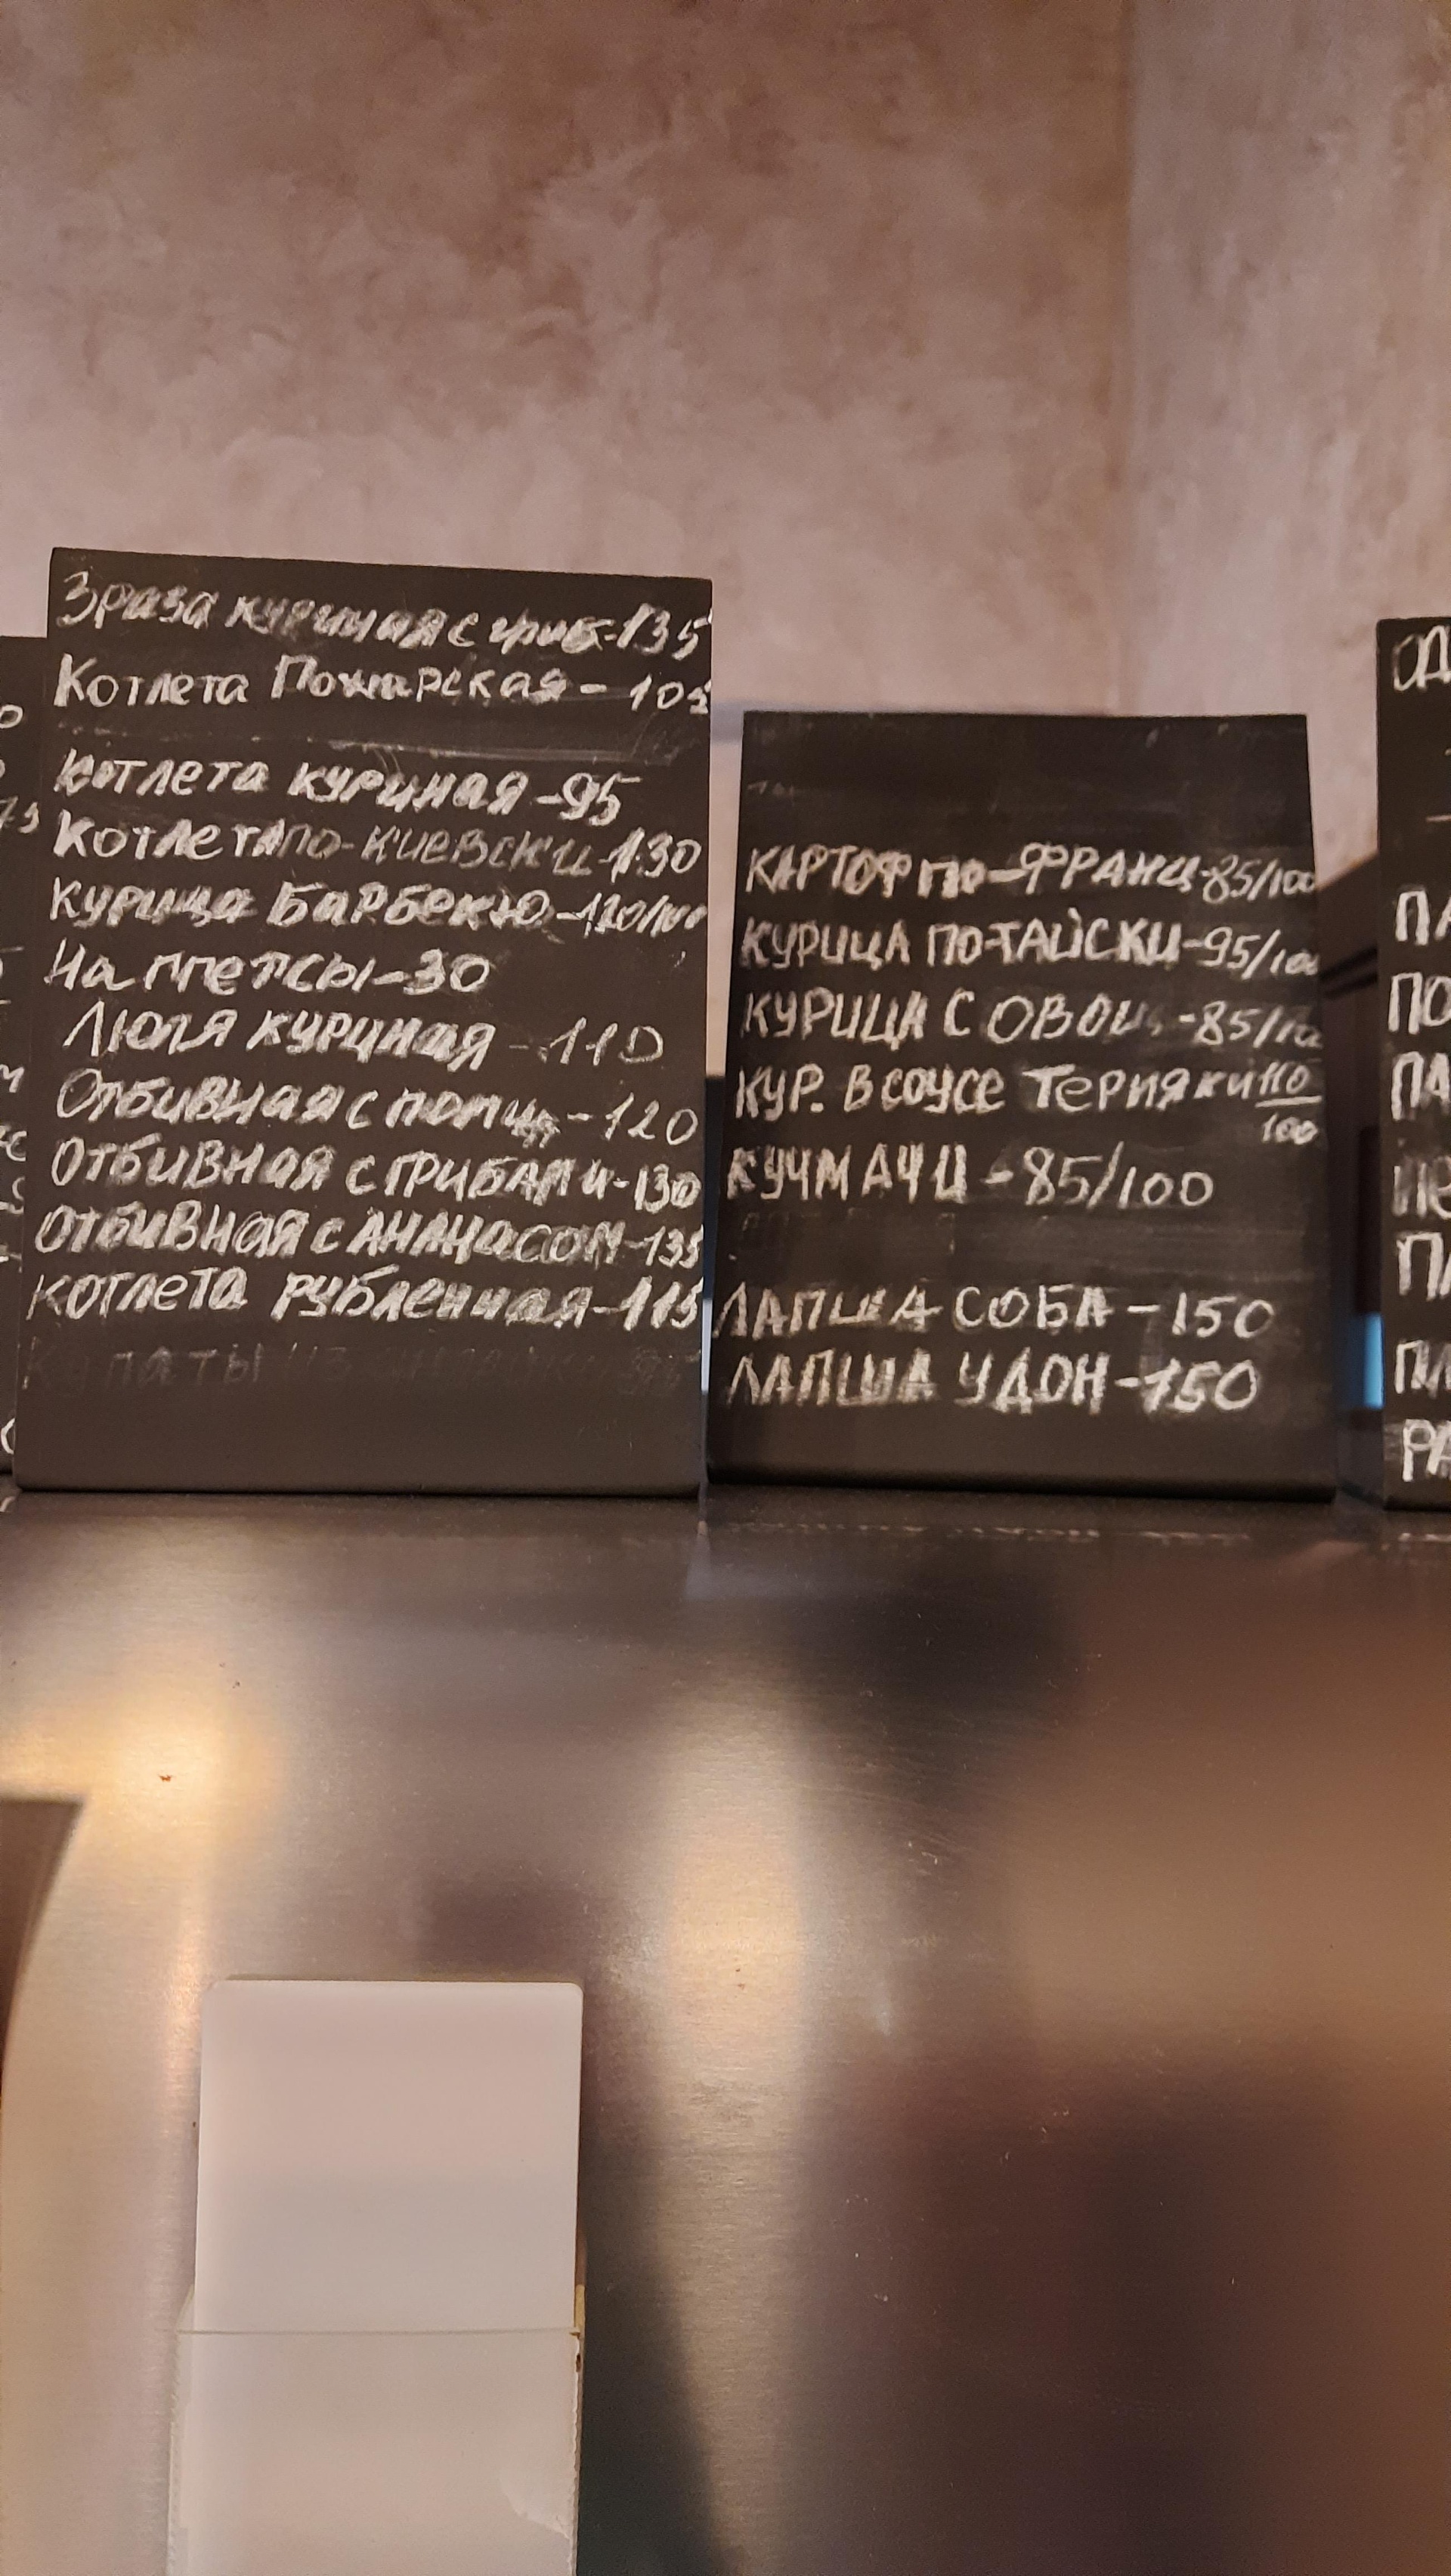 Зраза куриная с гриб-135
Котлета Пожарская - 105
Котлета куриная -95
Котлета по-киевски-130
Курица Барбекю-120/100
Наггетсы-30
Люля куриная -110
Отбивная с помид -120
Отбивная с грибами-130
Отбивная с АНАНАСОМ-135
Котлета рубленная-115
КАРТОФ ПО-ФРАНЦ-85/100
КУРИЦА ПО-ТАЙСКИ-95/100
КУРИЦА С ОВОЩ -85/100
КУР. В СОУСЕ ТЕРИЯКИ 110/100
КУЧМАЧИ -85/100
ЛАПША СОБА -150
ЛАПША УДОН-150